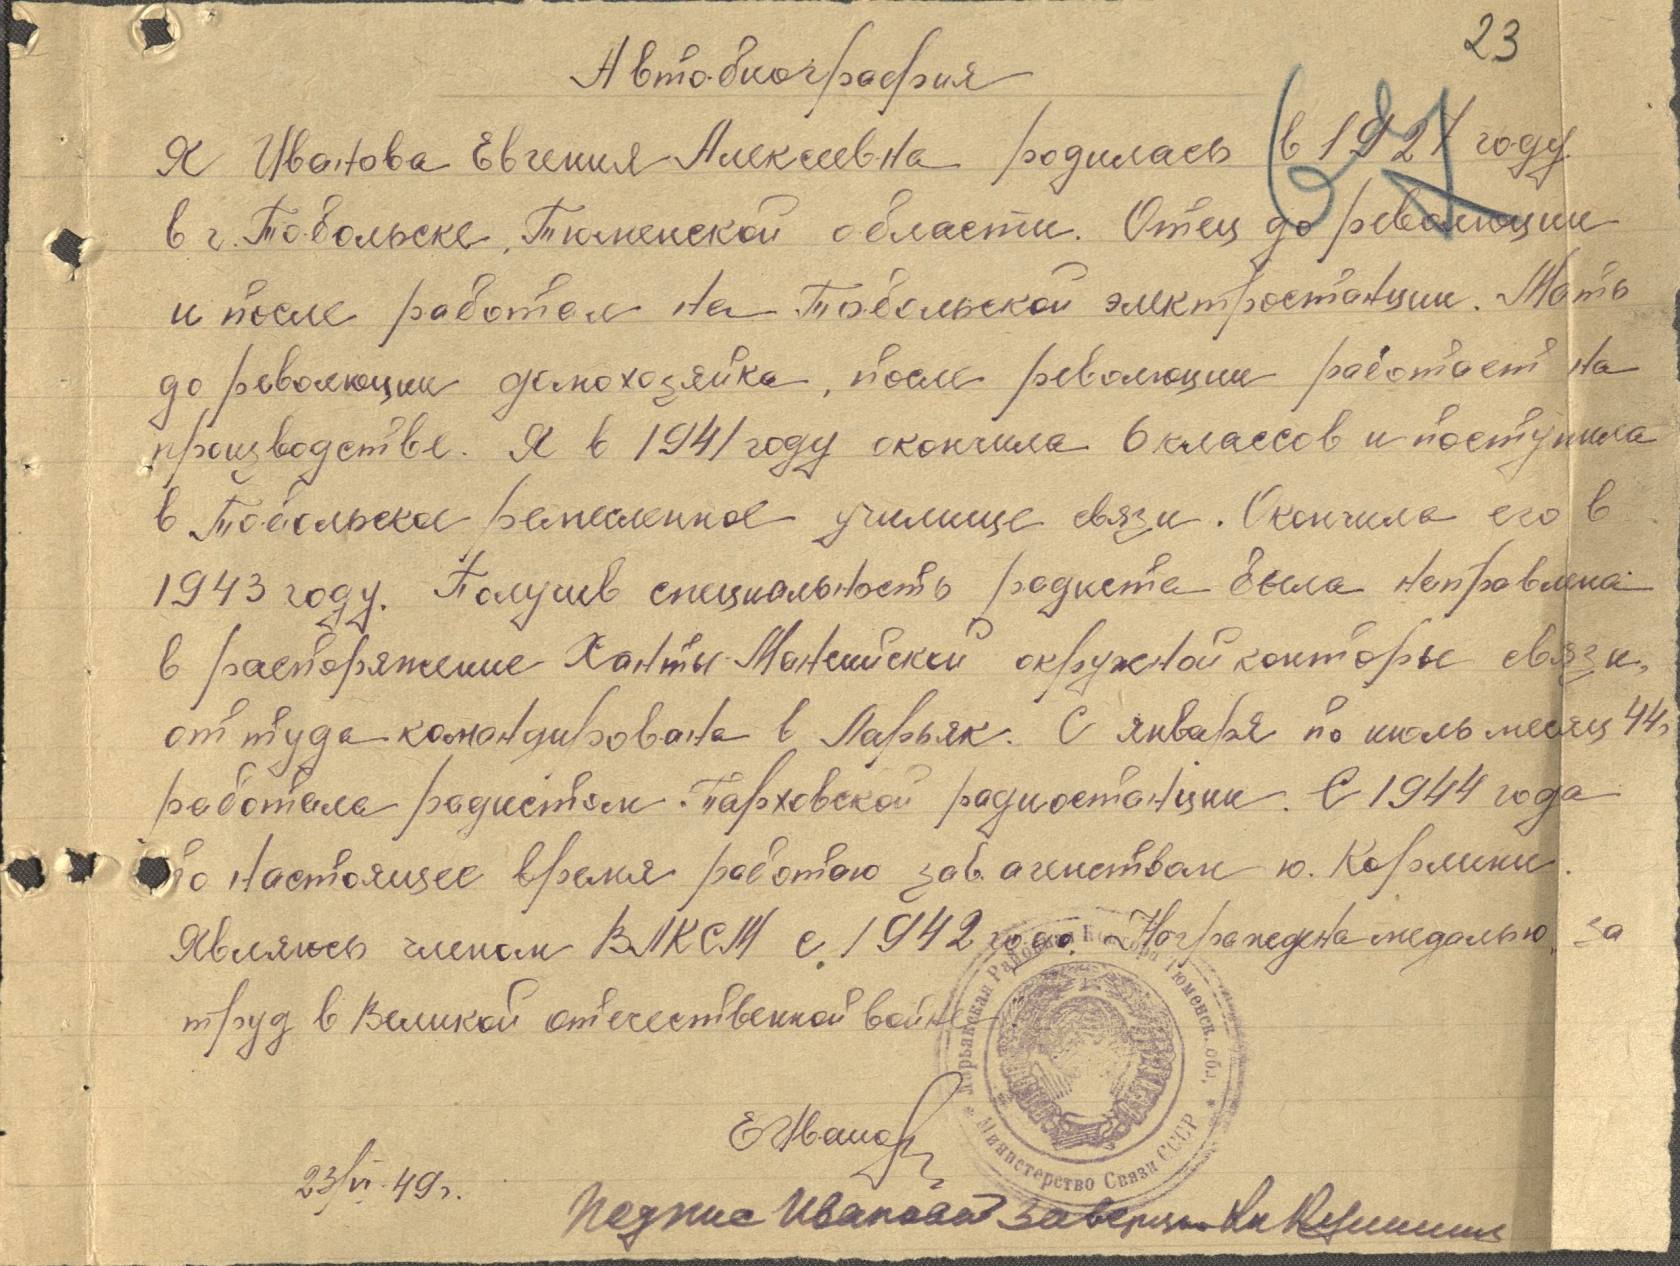 23
Автобиография
Я Иванова Евгения Алексеевна родилась в 1927 году
в г. Тобольске, Тюменской области. Отец до революции
и после работал на Тобольской электростанции. Мать
до революции домохозяйка, после революции работает на
производстве. Я в 1941 году окончила 6 классов и поступила
в Тобольское ремесленное училище связи. Окончила его в
1943 году. Получив специальность радиста была направлена
в распоряжение Ханты-Мансийской окружной конторы связи,
оттуда командирована в Ларьяк. С января по июль месяц 44г.
работала радистом Тарховской радиостанции. С 1944 года
по настоящее время работаю зав. агенством ю. Корлики.
Являюсь членом ВЛКСМ с 1942 года. Награждена медалью за
труд в Великой отечественной войне
Ларьякская Районная Контора Тюменск. обл.
* Министерство Связи СССР *
ЕИванов
23/VI-49г.
Подпис Ивановой заверяю